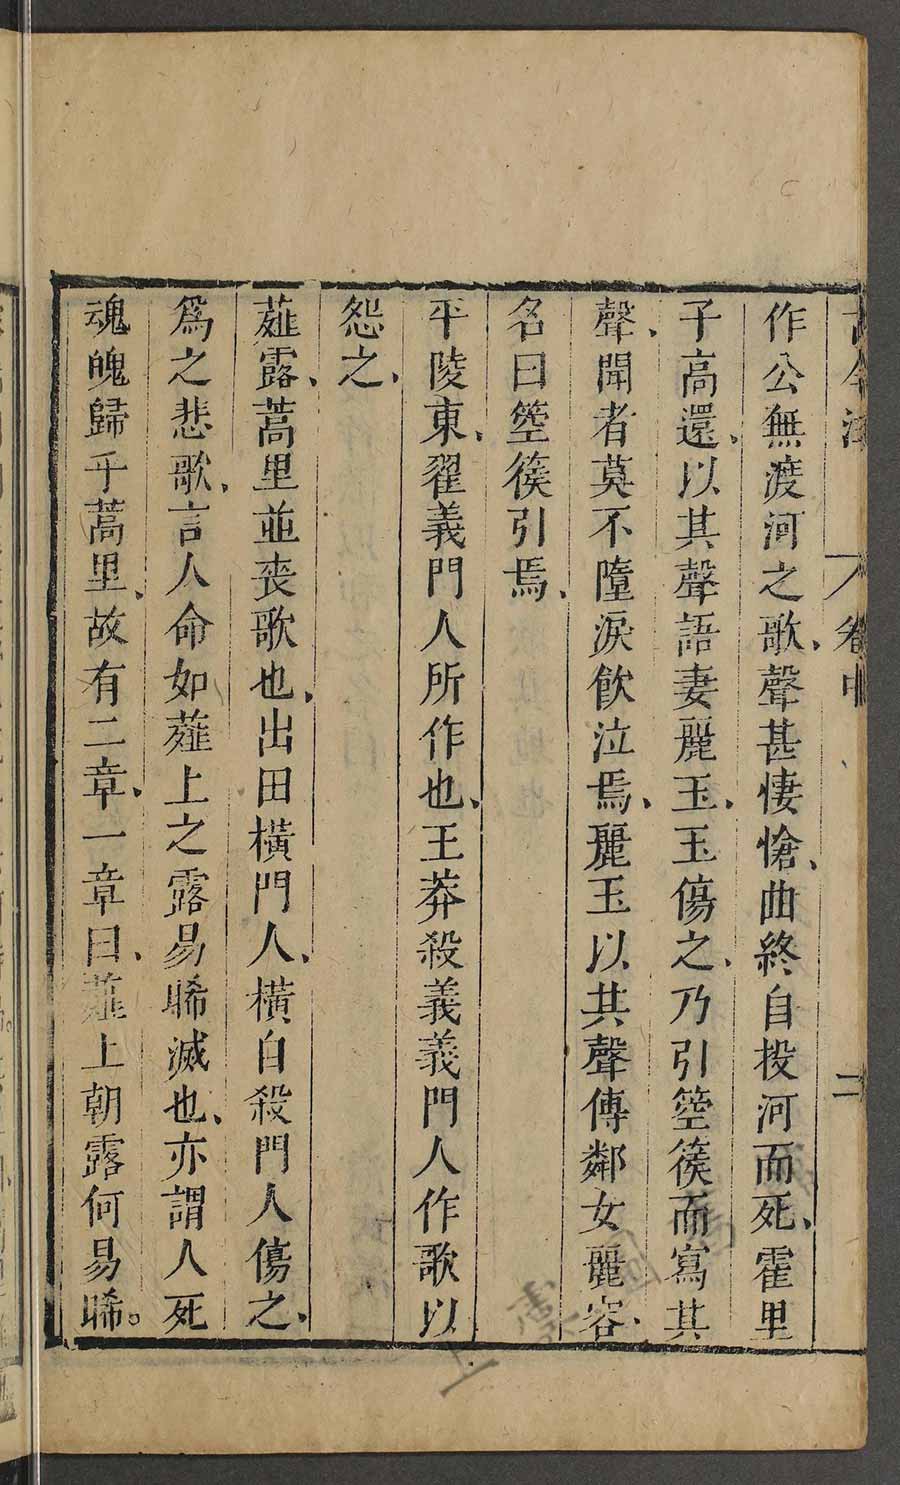 古今注 卷中 二
作公無渡河之歌、聲甚悽愴、曲終自投河而死、霍里
子高還、以其聲語妻麗玉、玉傷之、乃引箜篌而寫其
聲、聞者莫不墮淚飲泣焉、麗玉以其聲傳鄰女麗容、
名曰箜篌引焉、
平陵東、翟義門人所作也、王莽殺義義門人作歌以
怨之、
薤露、蒿里並丧歌也、出田橫門人、橫自殺門人傷之、
爲之悲歌、言人命如薤上之露易晞滅也、亦謂人死
魂魄歸乎蒿里、故有二章、一章曰、薤上朝露何易晞。